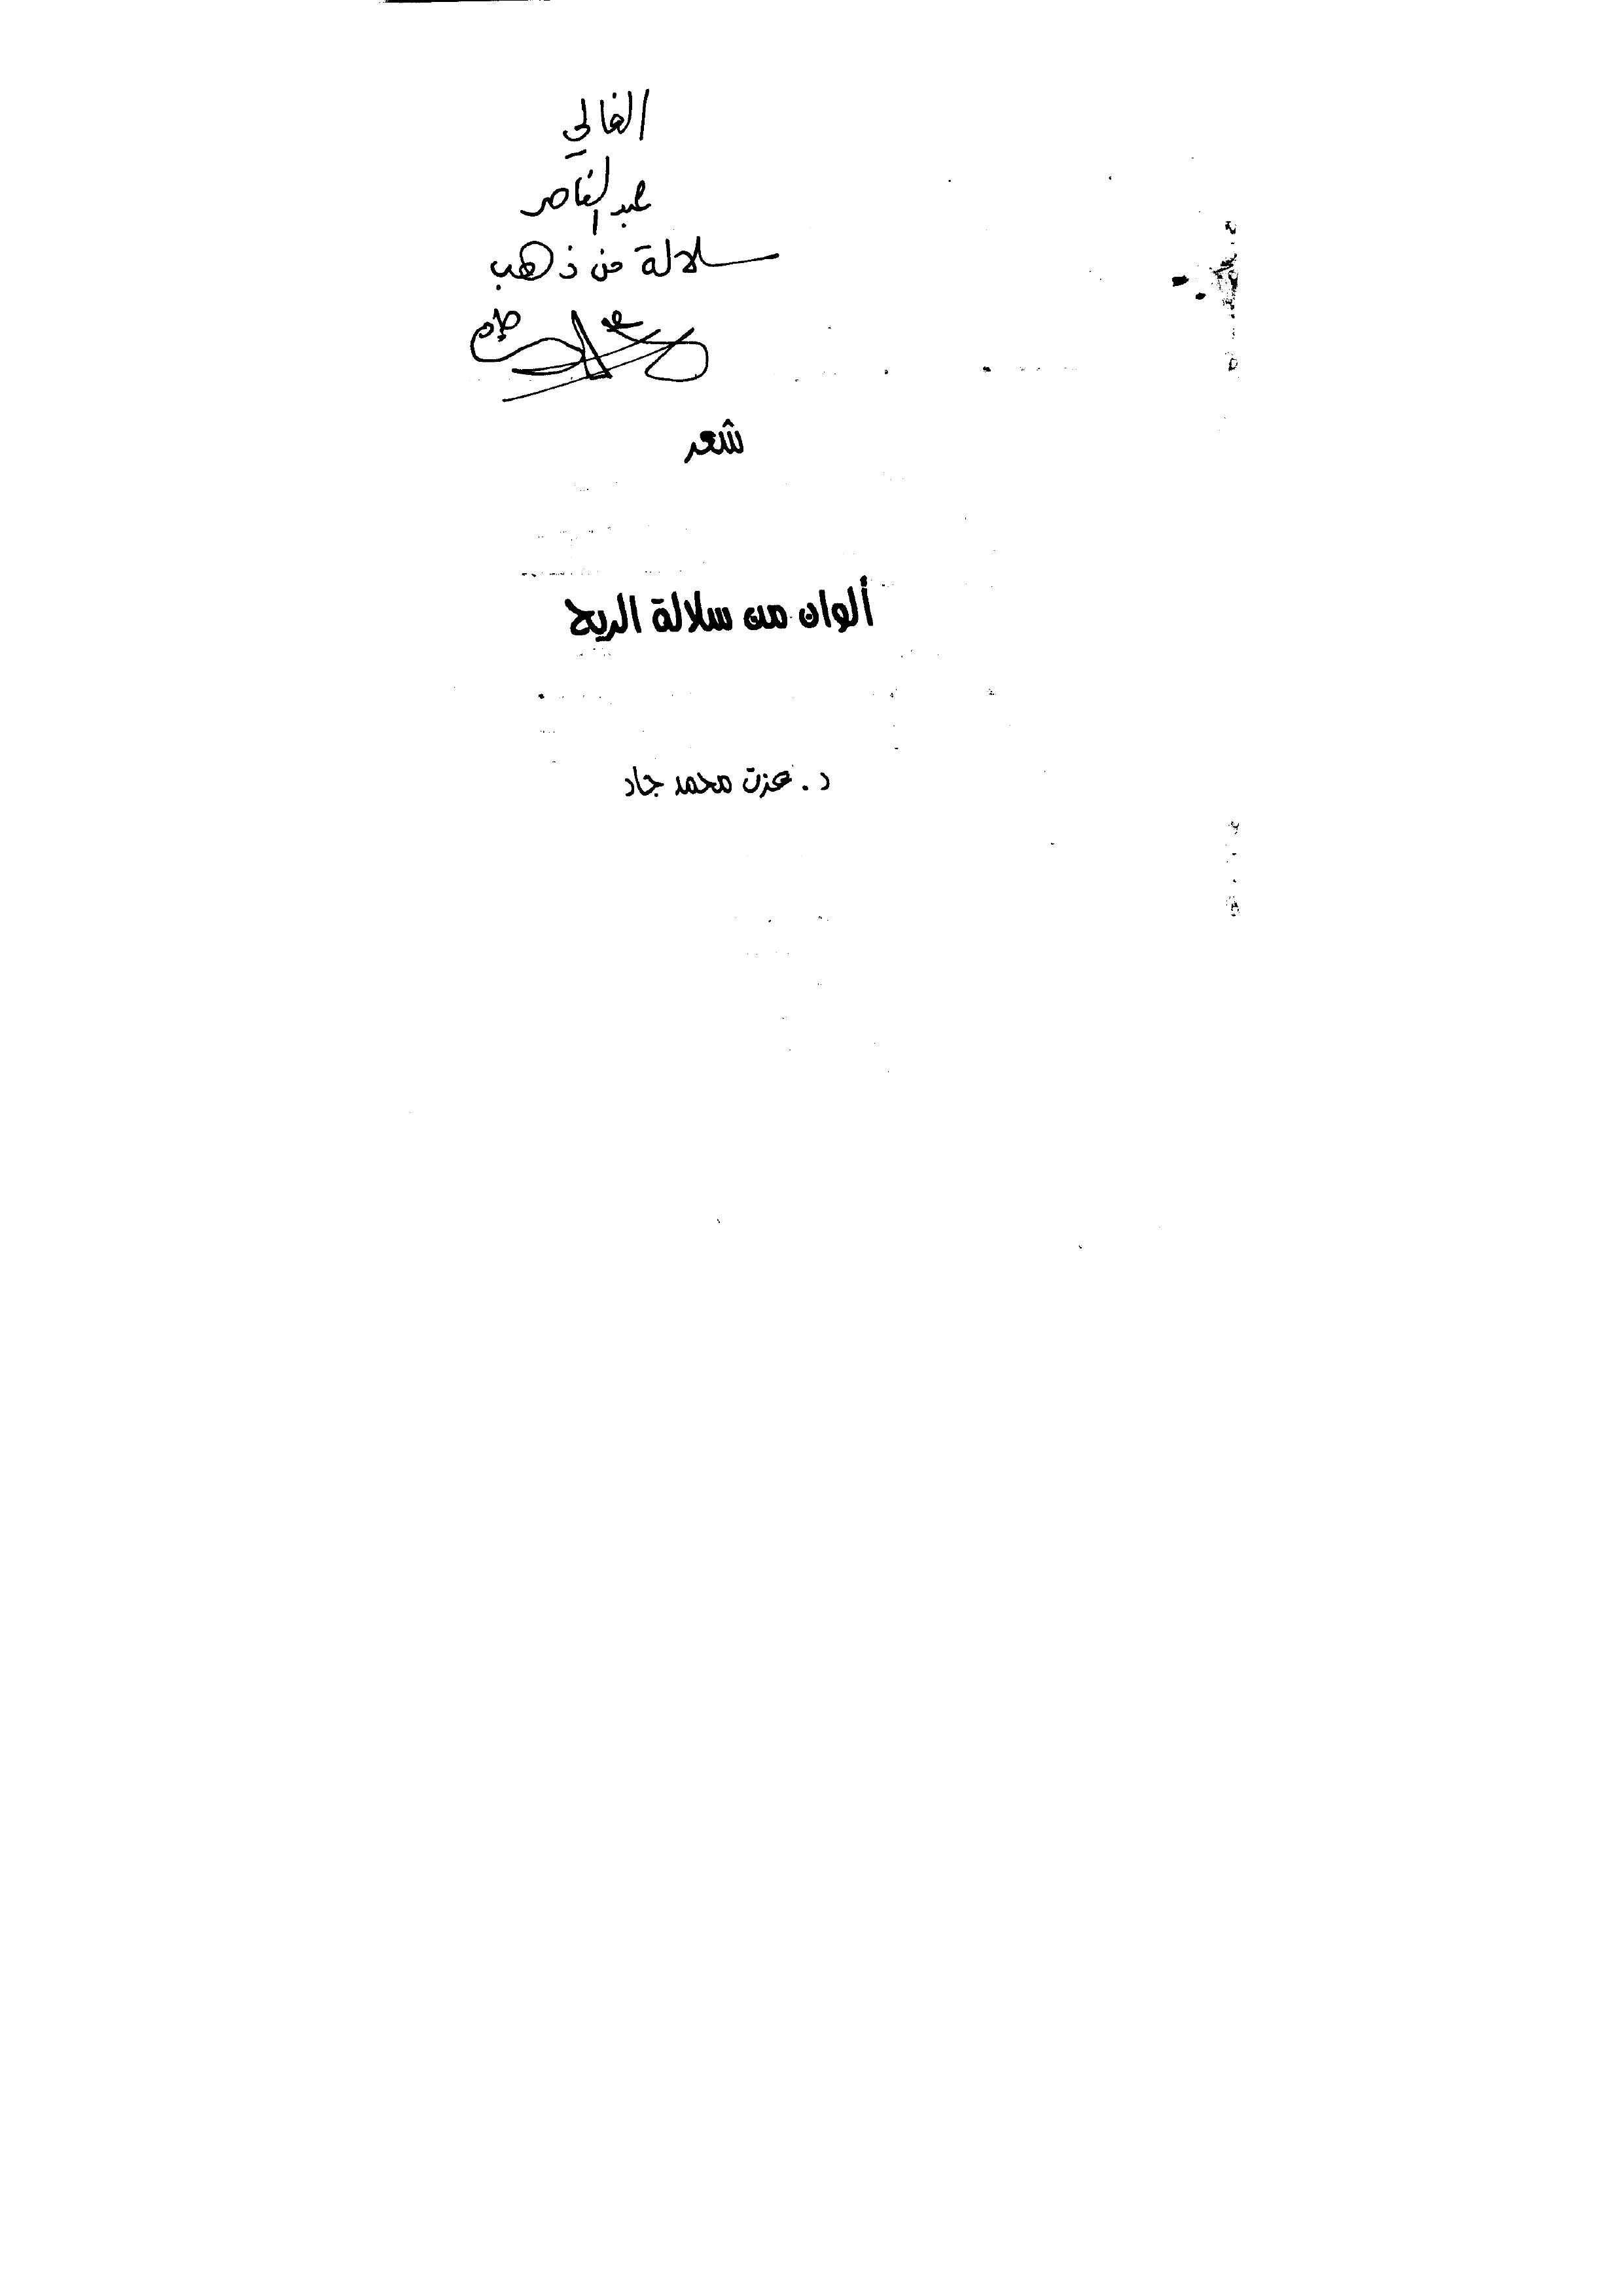 الغالي
عبد الناصر
سلالة من ذهب
شعر
ألوان من سلالة الريح
د. عزت محمد جاد